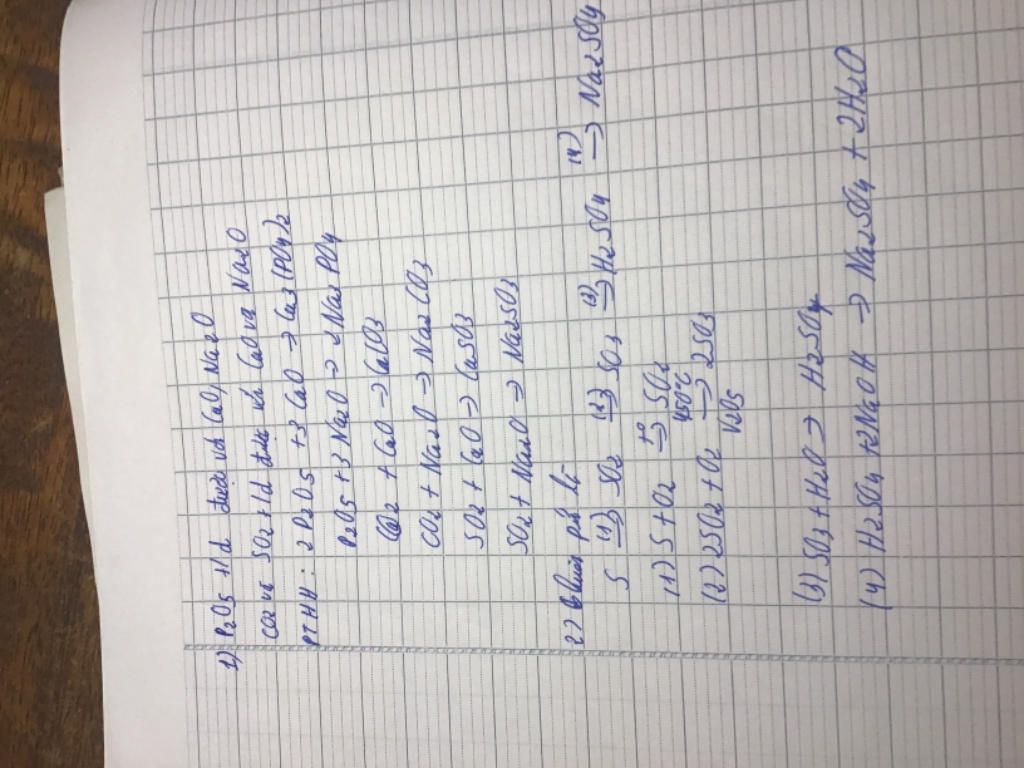 1) P2O5 t/d được với CaO, Na2O
CO2 và SO2 t/d được với CaO và Na2O
PTHH: 2 P2O5 + 3 CaO → Ca3(PO4)2
P2O5 + 3 Na2O → 2 Na3PO4
CO2 + CaO → CaCO3
CO2 + Na2O → Na2CO3
SO2 + CaO → CaSO3
SO2 + Na2O → Na2SO3
2)
S (1)→ SO2 (2)→ SO3 (3)→ H2SO4 (4)→ Na2SO4
(1) S + O2 t°→ SO2
(2) 2SO2 + O2 450°C→ V2O5 2SO3
(3) SO3 + H2O → H2SO4
(4) H2SO4 + 2NaOH → Na2SO4 + 2H2O